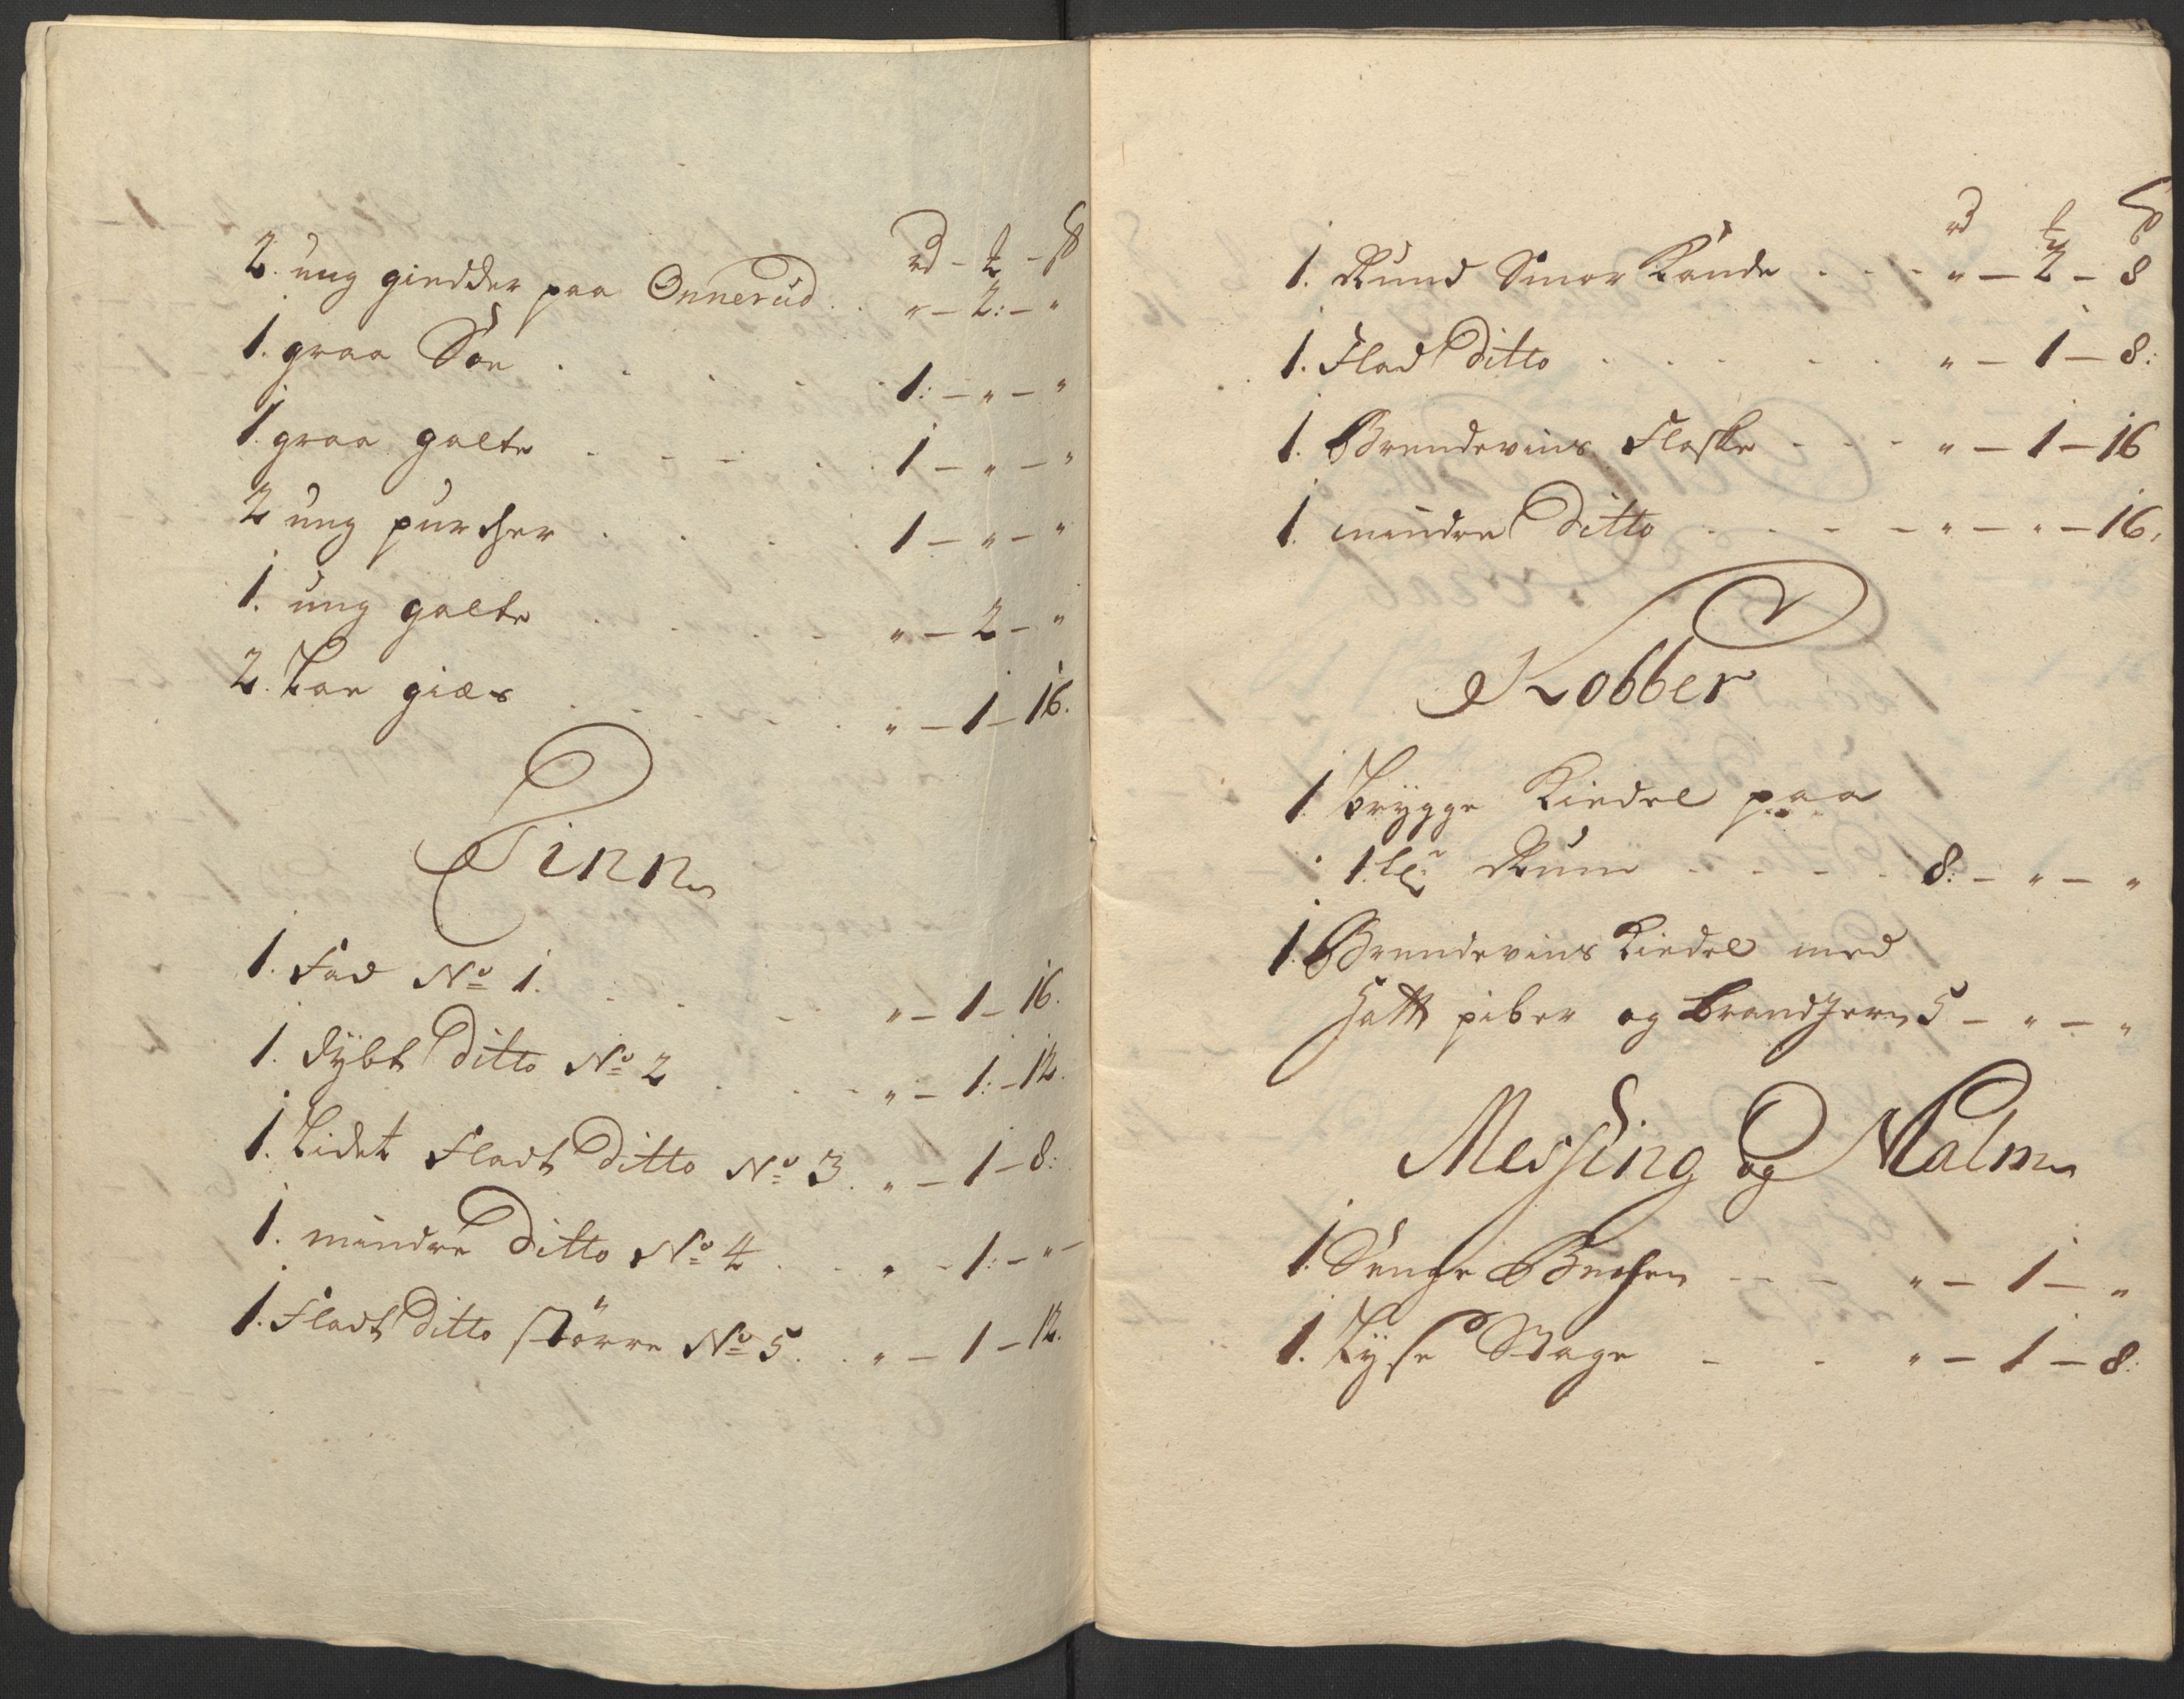 rd - ℔ - ß
2. ung giedder paa Onnerud . . " - 2: - "
1. graa Soe . . . . 1: - " - "
1. graa galte . . . . 1 - " - "
2 ung purcher . . . . 1 - " - "
1. ung galte . . . . " - 2 - "
2. Par giæs . . . . " - 1 - 16.
Tinn
1. Fad No 1. . . . " - 1 - 16.
1. dybt Ditto No 2 . . . " - 1: - 12.
1. Lidet Fladt Ditto No 3. " - 1 - 8:
1. mindre Ditto No 4 . . " - 1: - "
1. Fladt Ditto större No 5. . " - 1 - 12.
rd ß
1. Rund Smør Kande . . . " - 2 - 8
1. Flad Ditto . . . . " - 1 - 8:
1. Brendevins Flaske - - - " - 1 - 16
1. mindre Ditto . . - - " - " - 16.
Kobber
1 brygge Kiedel paa
1 Rum - - - - 8: - " - "
1. Brendevins Kiedel med
Hatt piber og brandjern 5 - " - "
Messing og Malm
1. Senge Bechen - - - " - 1 - "
1. Lyse Stage - - " - 1 - 8: